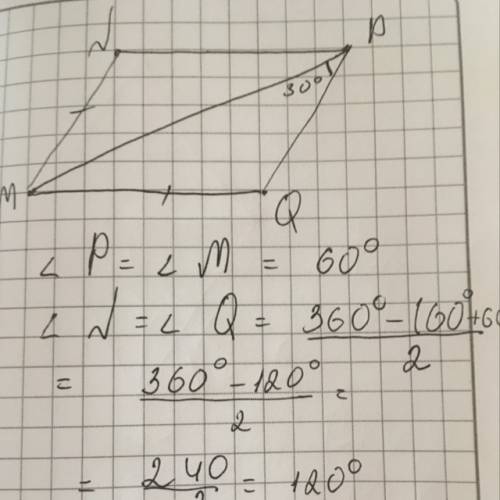 N P
30°
M Q
∠ P = ∠ M = 60°
∠ N = ∠ Q = 360° - (60° + 60
2
= 360° - 120° =
2
= 240 = 120°
2